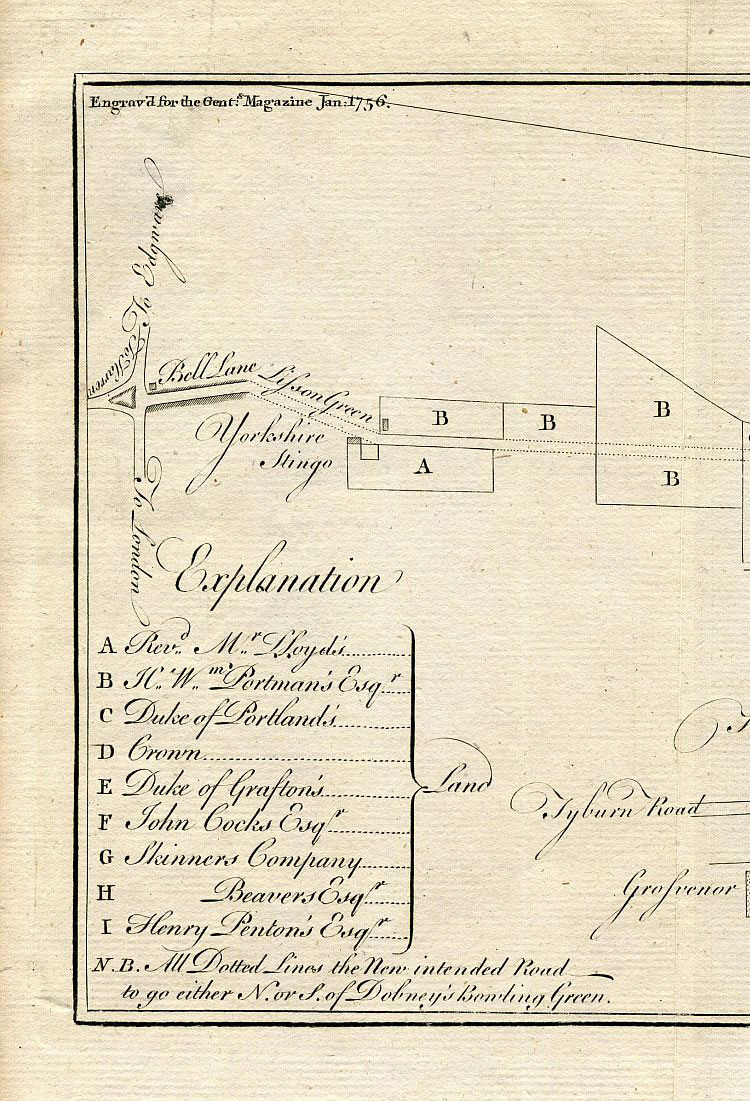 Engrav'd for the Gent.s Magazine Jan: 1756.
To Edgware
To Harrow
Bell Lane
Lisson Green
Yorkshire
Stingo
B
B
B
A
B
To London
Explanation
A Rev.d M.r Lloyd's
B H. W.m Portman's Esq.r
C Duke of Portland's
D Crown
E Duke of Grafton's
F John Cocks Esq.r
G Skinners Company
H Beavers Esq.r
I Henry Penton's Esq.r
Land
Tyburn Road
Grosvenor
N.B. All Dotted Lines the New intended Road
to go either N. or S. of Dobney's Bowling Green.